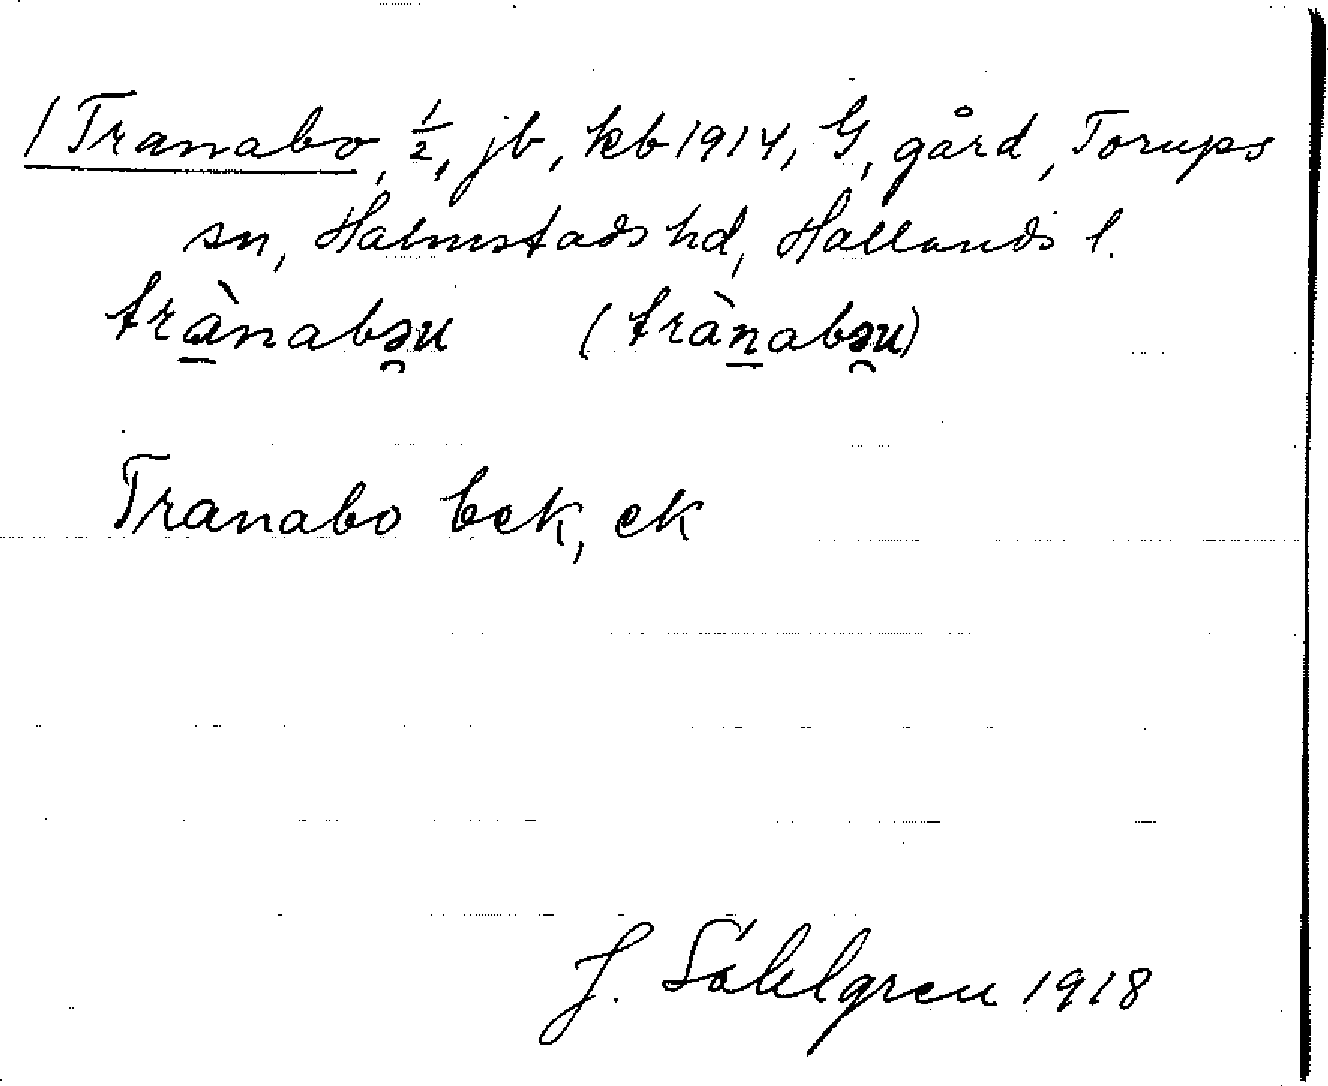 / Tranabo, ½, jb, kb 1914, G, gård, Torups
sn, Halmstads hd, Hallands l.
trà̱nabə̯u (tràṉabə̯u)
Tranabo bek, ek
J. Sahlgren 1918